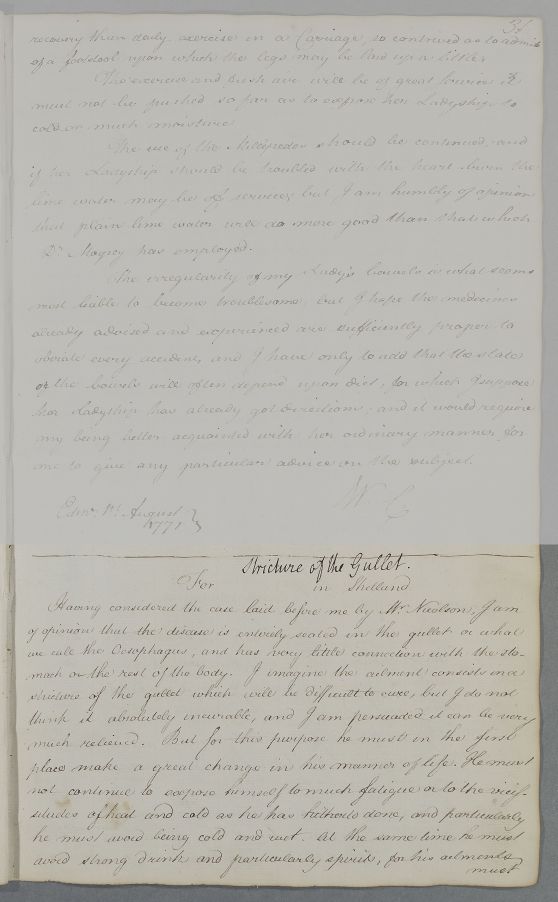 34
recovery than daily exercise in a Carriage, so contrived as to admit
of a footstool upon which the legs may be laid up a little.
The exercise and fresh air will be of great service it
must not be pushed so far as to expose her Ladyship to
cold or much moisture
The use of the Millepedes should be continued, and
if her Ladyship should be troubled with the heart burn the
lime water may be of service; but I am humbly of opinion
that plain lime water will do more good than that which
Dr. has employed.
The irregularity of my Lady's bowels is what seems
most liable to become troublesome, but I hope the medecines
already advised and experienced are sufficiently proper to
obviate every accident, and I have only to add that the state
of the bowels will often depend upon diet, for which I suppose
her Ladyship has already got directions; and it would require
my being better acquainted with her ordinary manner for
me to give any particular advice on the subject.
W C
Edinr. 1st August
1771
Stricture of the Gullet.
For in Shetland
Having considered the case laid before me by Mr Nicolson, I am
of opinion that the disease is entirely seated in the gullet or what
we call the Oesophagus, and has very little connection with the sto-
mach or the rest of the body. I imagine the ailment consists in a
stricture of the gullet which will be difficult to cure, but I do not
think it absolutely incurable, and I am persuaded it can be very
much relieved. But for this purpose he must in the first
place make a great change in his manner of life. He must
not continue to expose himself to much fatigue or to the vicis-
situdes of heat and cold as he has hitherto done, and particularly
he must avoid being cold and wet. At the same time he must
avoid strong drink and particularly spirits, for his ailments
must